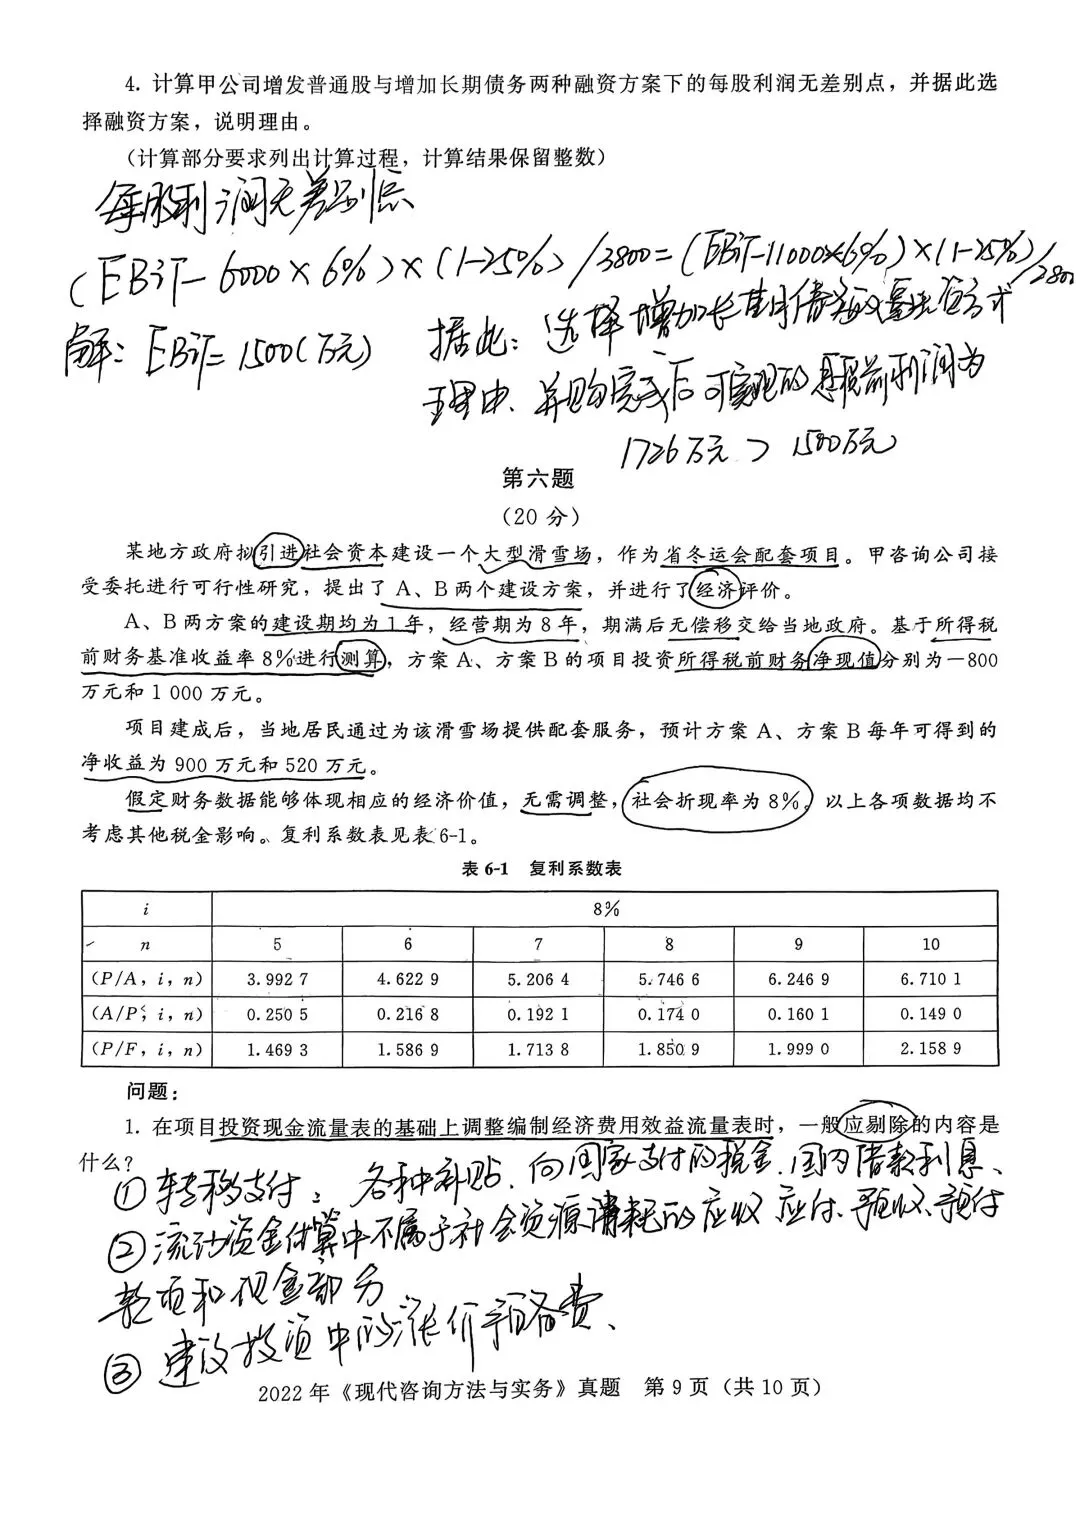 4. 计算甲公司增发普通股与增加长期债务两种融资方案下的每股利润无差别点，并据此选
择融资方案，说明理由。
（计算部分要求列出计算过程，计算结果保留整数）
每股利润无差别点
(EBiT-6000×6%)×(1-25%)/3800=(EBiT-11000×6%)×(1-25%)/2800
解：EBiT=1500(万元)
据此：选择增加长期债务融资方式
理由、并购完成后可实现的息税前利润为
1726万元 > 1500万元
第六题
（20 分）
某地方政府拟引进社会资本建设一个大型滑雪场，作为省冬运会配套项目。甲咨询公司接
受委托进行可行性研究，提出了 A、B 两个建设方案，并进行了经济评价。
A、B 两方案的建设期均为 1 年，经营期为 8 年，期满后无偿移交给当地政府。基于所得税
前财务基准收益率 8%进行测算，方案 A、方案 B 的项目投资所得税前财务净现值分别为－800
万元和 1 000 万元。
项目建成后，当地居民通过为该滑雪场提供配套服务，预计方案 A、方案 B 每年可得到的
净收益为 900 万元和 520 万元。
假定财务数据能够体现相应的经济价值，无需调整，社会折现率为 8%。以上各项数据均不
考虑其他税金影响。复利系数表见表 6-1。
表 6-1 复利系数表
i 8%
n 5 6 7 8 9 10
(P/A，i，n) 3.992 7 4.622 9 5.206 4 5.746 6 6.246 9 6.710 1
(A/P，i，n) 0.250 5 0.216 8 0.192 1 0.174 0 0.160 1 0.149 0
(P/F，i，n) 1.469 3 1.586 9 1.713 8 1.850 9 1.999 0 2.158 9
问题：
1. 在项目投资现金流量表的基础上调整编制经济费用效益流量表时，一般应剔除的内容是
什么？
①转移支付：各种补贴、向国家支付的税金、国内借款利息、
②流动资金估算中不属于社会资源消耗的应收、应付、预收、预付
款项和现金部分
③建设投资中的涨价预备费、
2022 年《现代咨询方法与实务》真题 第 9 页（共 10 页）